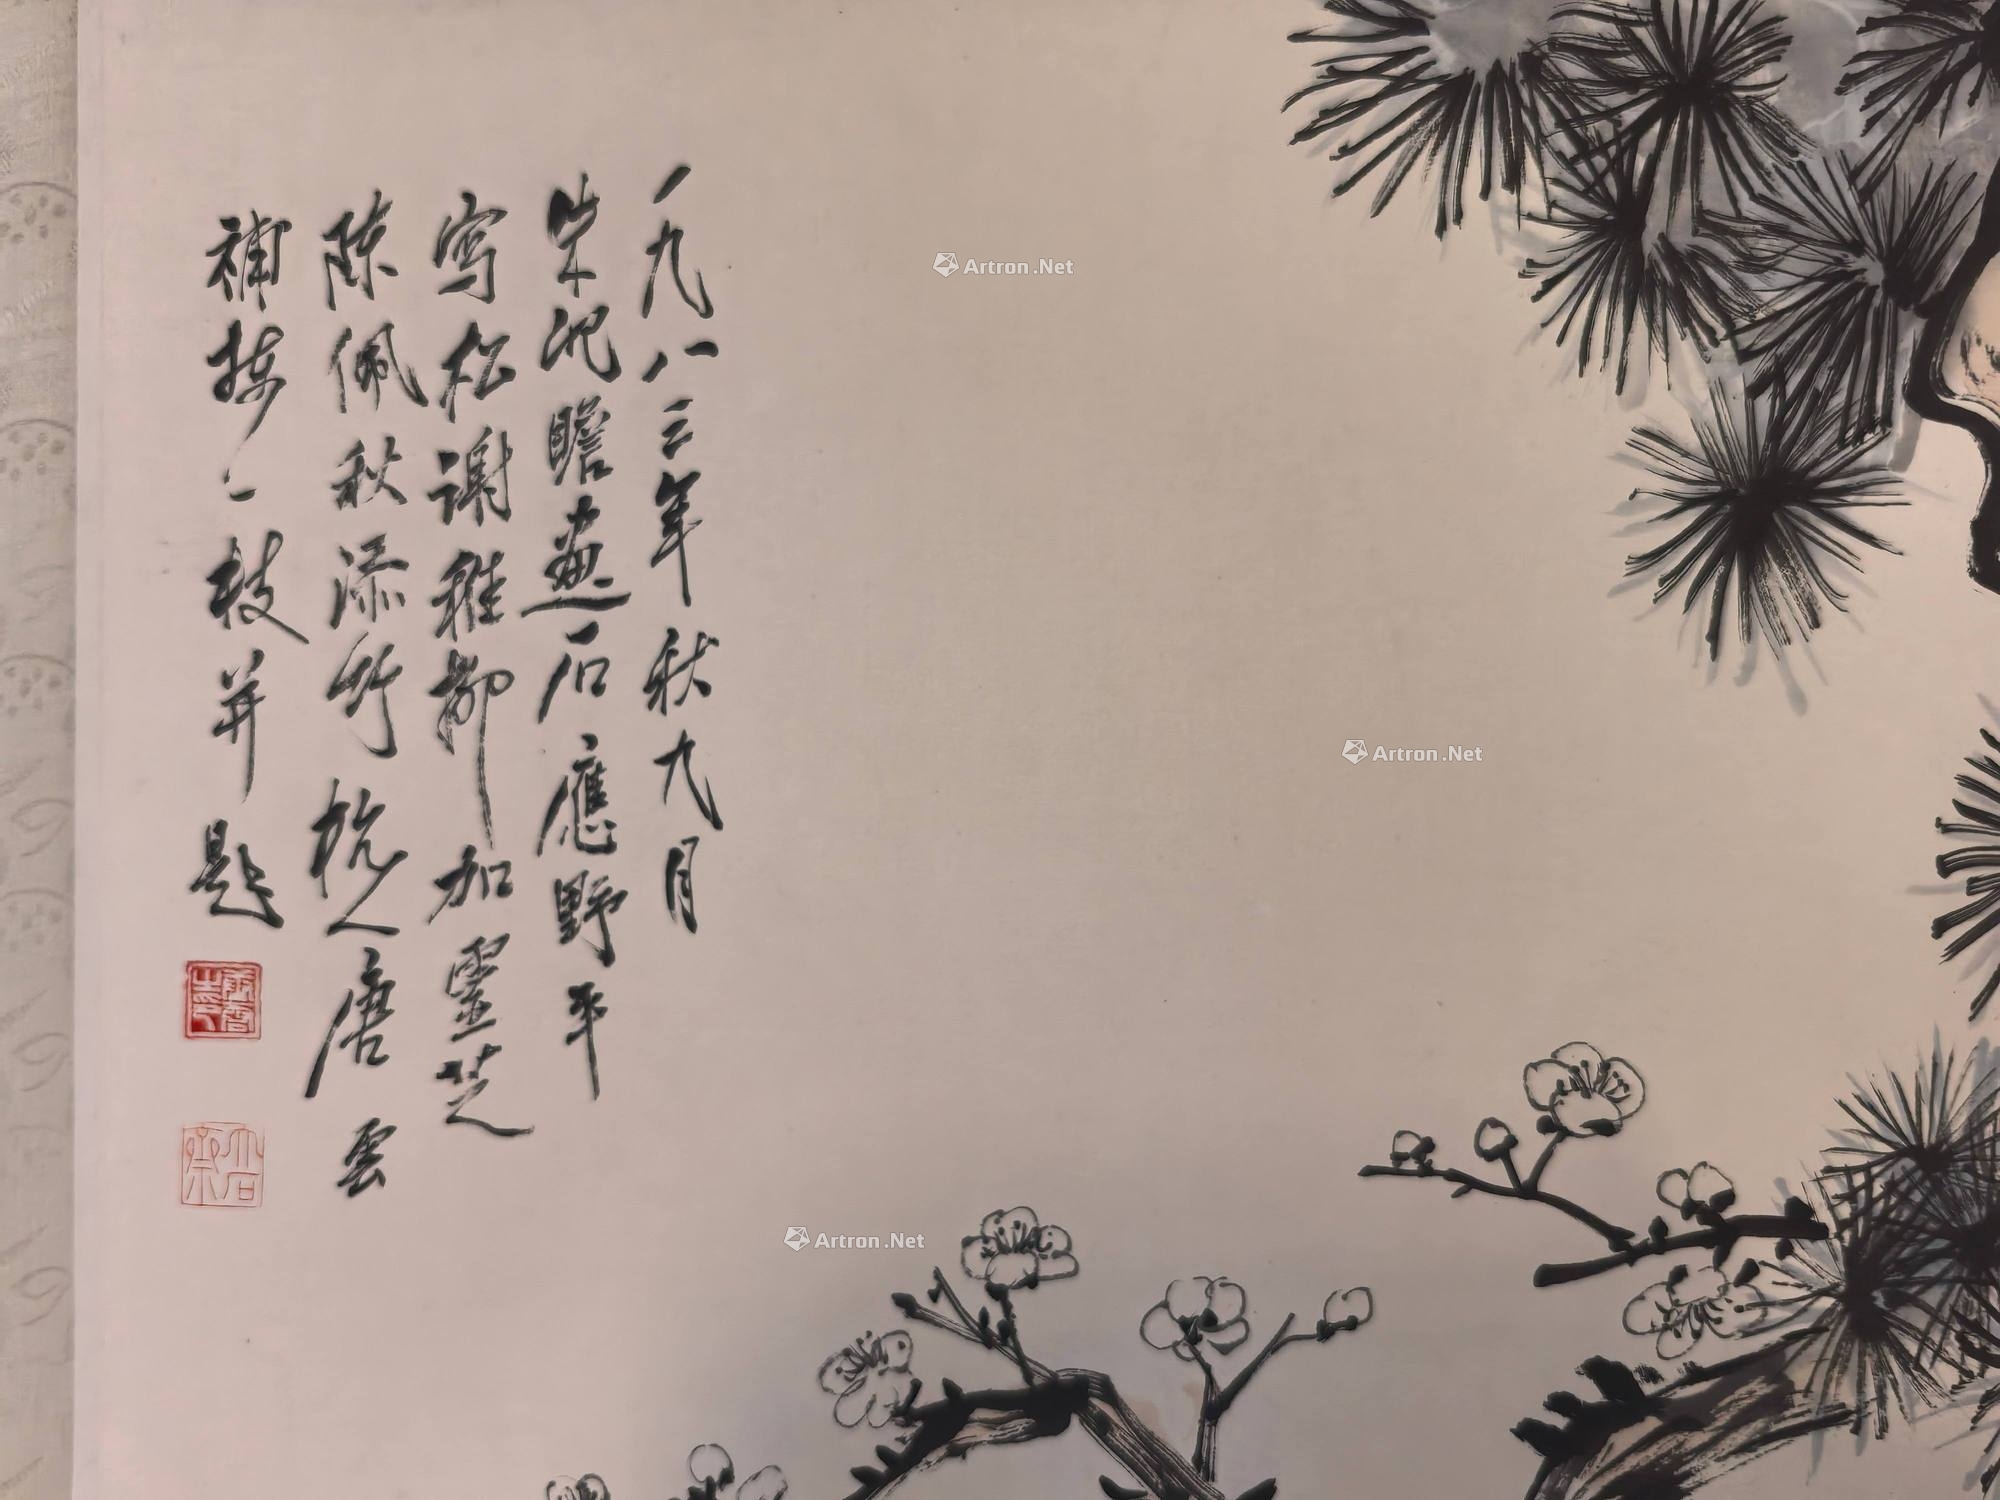 一九八三年秋九月
朱屺瞻画石應野平
寫松謝稚柳加靈芝
陳佩秋添竹杭人唐雲
補梅一枝并題
大石齋
Artron.Net
Artron.Net
Artron.Net